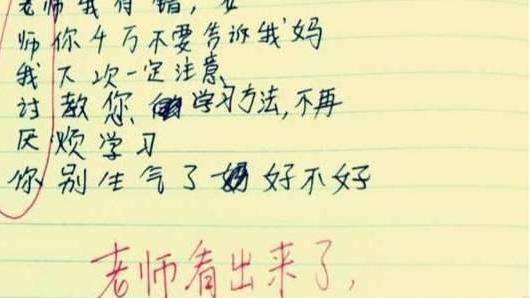 老师我有错，女
师你千万不要告诉我妈
我下次一定注意
讨教您的学习方法,不再
厌烦学习
你别生气了好不好
老师看出来了,